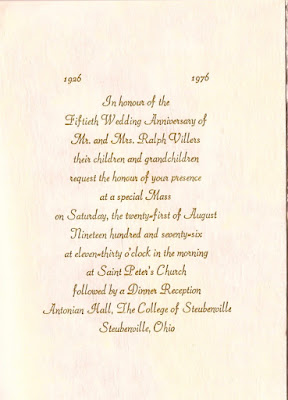 1926 1976
In honour of the
Fiftieth Wedding Anniversary of
Mr. and Mrs. Ralph Villers
their children and grandchildren
request the honour of your presence
at a special Mass
on Saturday, the twenty-first of August
Nineteen hundred and seventy-six
at eleven-thirty o'clock in the morning
at Saint Peter's Church
followed by a Dinner Reception
Antonian Hall, The College of Steubenville
Steubenville, Ohio